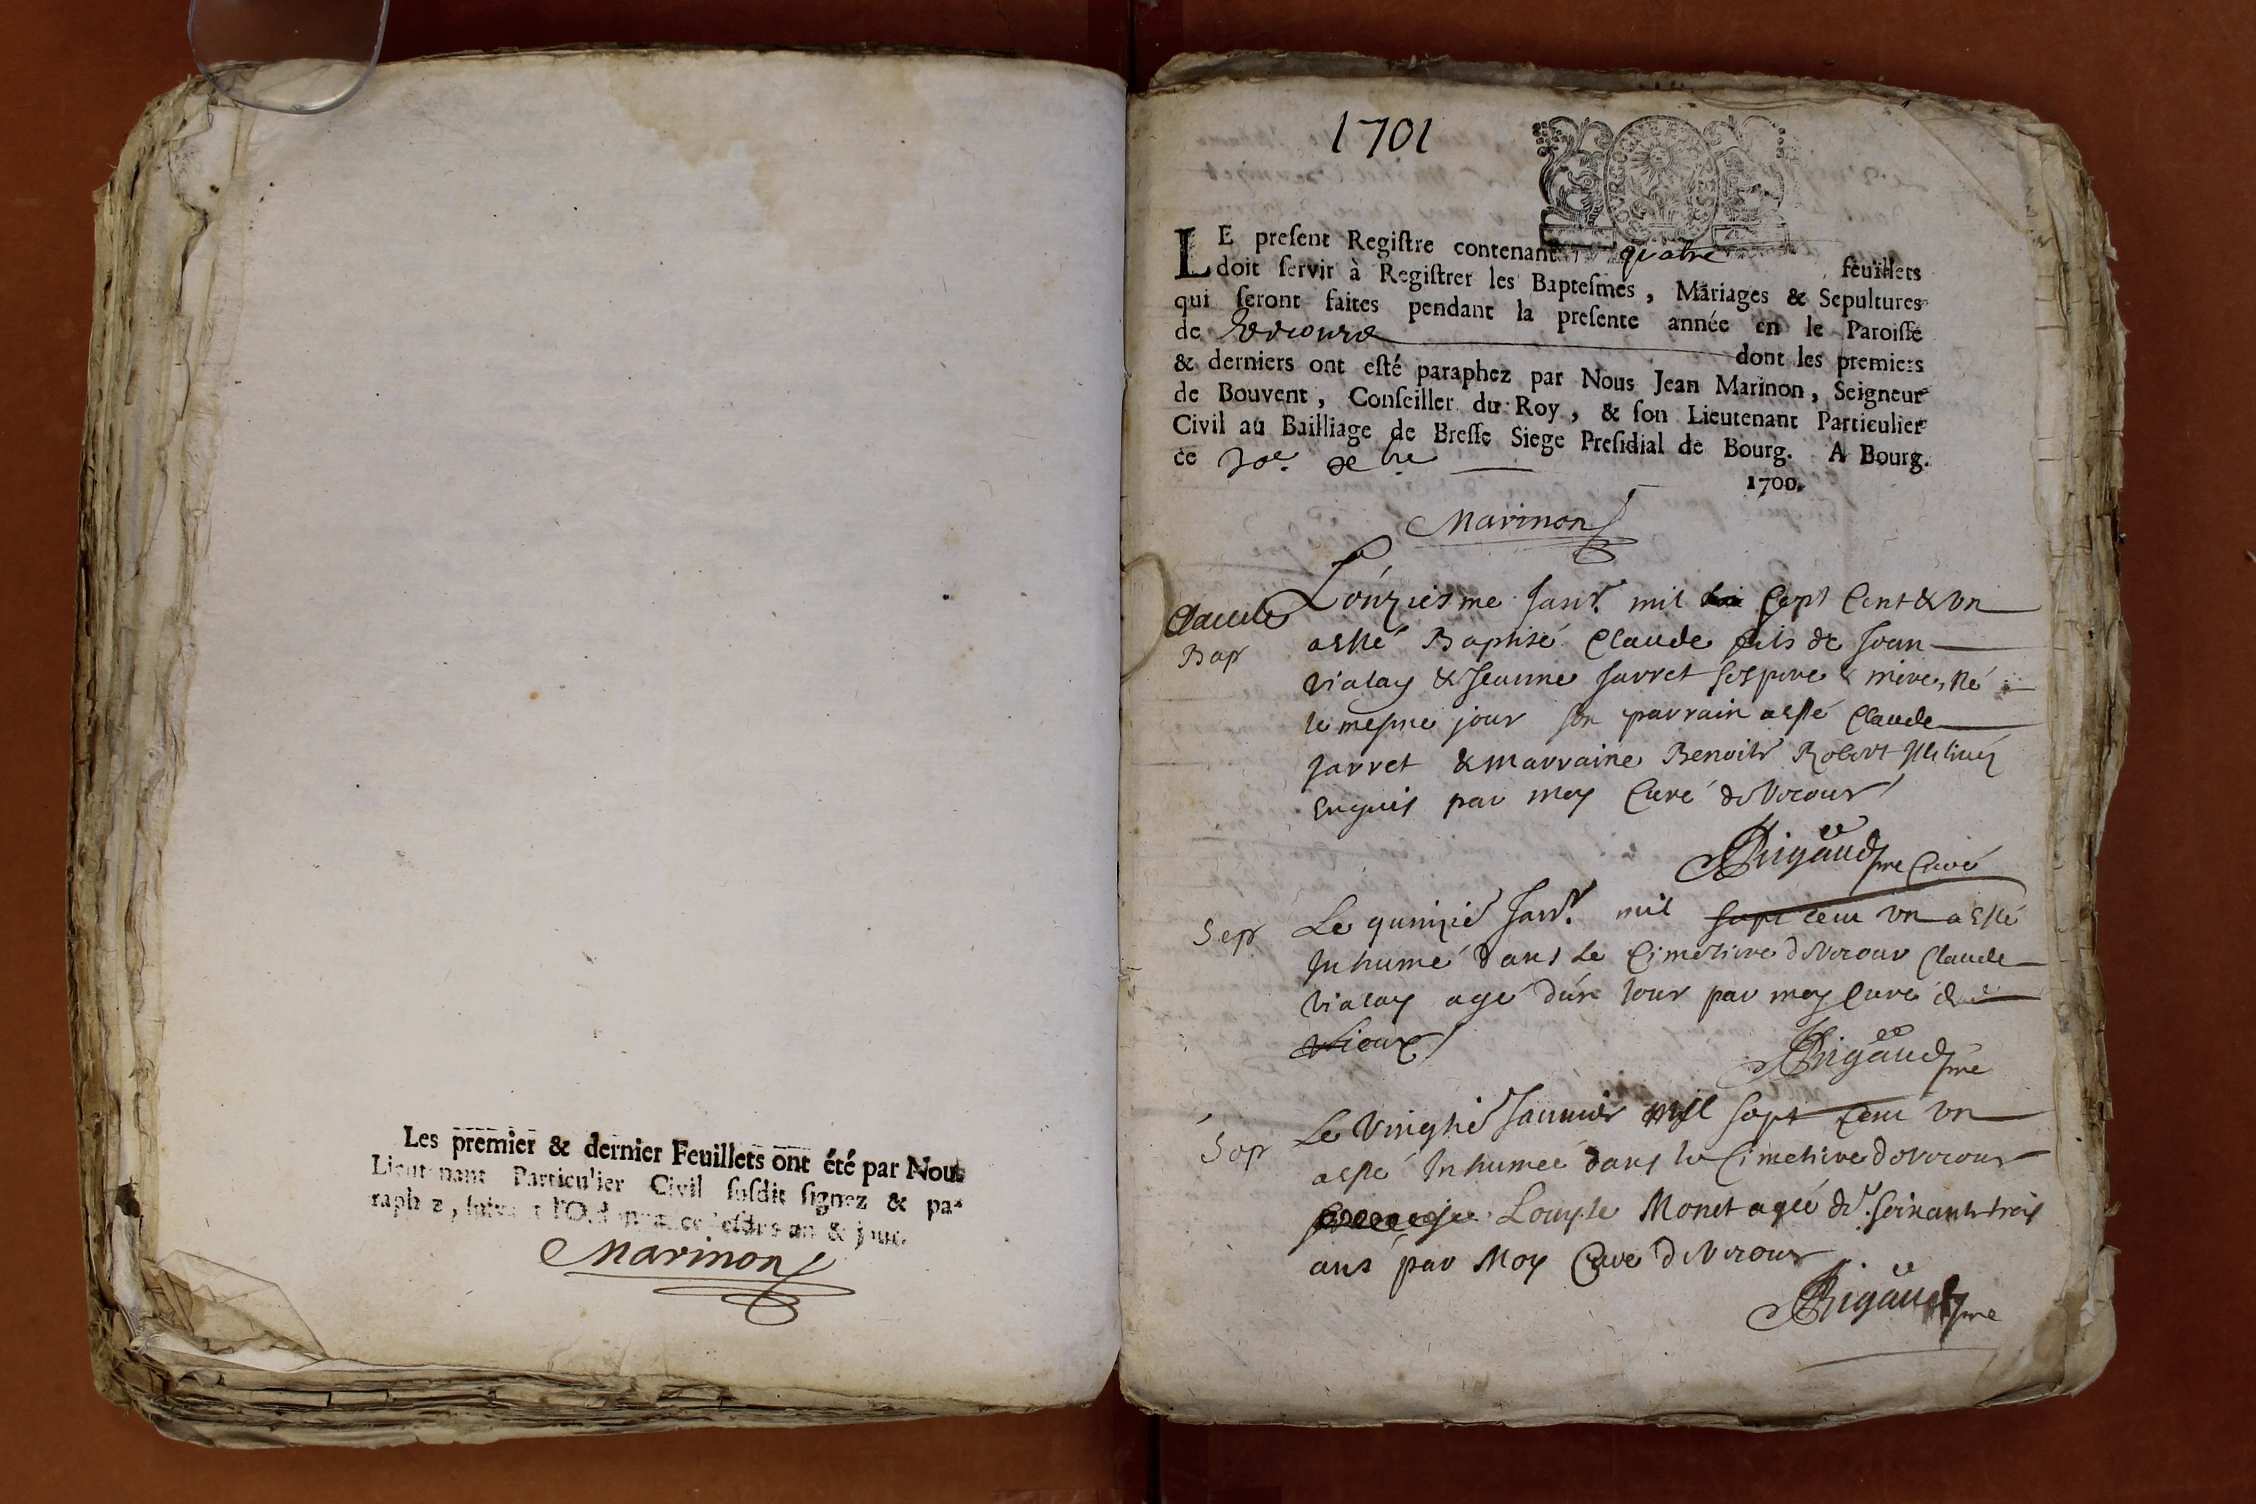 Les premier & dernier Feuillets ont été par Nous
Lieutenant Particulier Civil susdit signez & pa-
raphez, suivant l'Ordonnance lesdits an & jour.
Marinon
1701
BOURGOGNE ET BRESSE
LE present Registre contenant quatre feuillets
doit servir à Registrer les Baptesmes, Mariages & Sepultures
qui seront faites pendant la presente année en le Paroisse
de Vericourt dont les premiers
& derniers ont esté paraphez par Nous Jean Marinon, Seigneur
de Bouvent, Conseiller du Roy, & son Lieutenant Particulier
Civil au Bailliage de Bresse Siege Presidial de Bourg. A Bourg.
ce
1700.
Marinon
Claude
Bap
L'ónziesme Janv.r mil Cept Cent & Vn
a esté Baptisé Claude fils de Jean
Vialay & Jeanne Jarret ses pere & mere, Né
le mesme jour son parrain a esté Claude
Jarret & marraine Benoite Robert
par moy Curé de Vecour
Rigaud pre Curé
Sep
Le quinzie Janv.r mil Sept cent Vn a esté
Inhumé dans Le Cimetiere de Vecour Claude
Vialay agé d'ún Jour par moy Curé de
Rigaud pre
Sep
Le Vingtie Janvier mil Sept cent Vn
a esté Inhumée dans le Cimetiere de Vecour
Monet agée de Soixante trois
ans par Moy Curé de Vecour
Rigaud pre